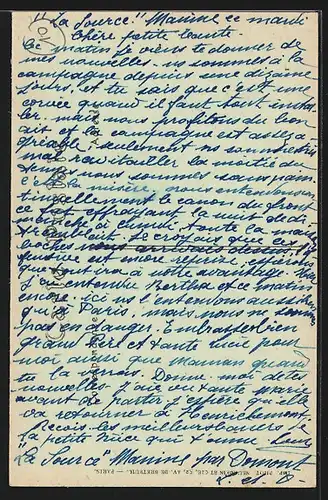 "La Source" Manine ce mardi
Chère petite tante
Ce matin je viens te donner de
mes nouvelles. ns sommes à la
campagne depuis une dizaine
jours, et tu sais que c'est une
corvée quand il faut tout instal-
ler. mais nous profitons du bon
air et la campagne est assez a
gréable seulement ns sommes très
mal ravitailler la moitié du
temps nous sommes sans pain
c'est la misère, nous entendons con
tinuellement le canon du front
c'est effrayant la nuit de di-
manche à lundi toute la mai
Je croyais que ces
est more reprise
que à notre avantage.
J'ai entendu Bertha et ce matin
encore. ici ns l'entendons aussi bien
qu'à Paris. mais nous ne sommes
pas en danger. Embrasse bien
grand Père et tante Lucie pour
moi ainsi que Maman quand
tu la verras. Donne moi de tes
nouvelles. J'ai vu tante Marie
avant de partir j'espère qu'elle
va retourner à
Reçois les meilleurs baisers de
ta petite nièce qui t'aime
La Source" Manine par Dormont
S. et O.
Correspondance
PARIS